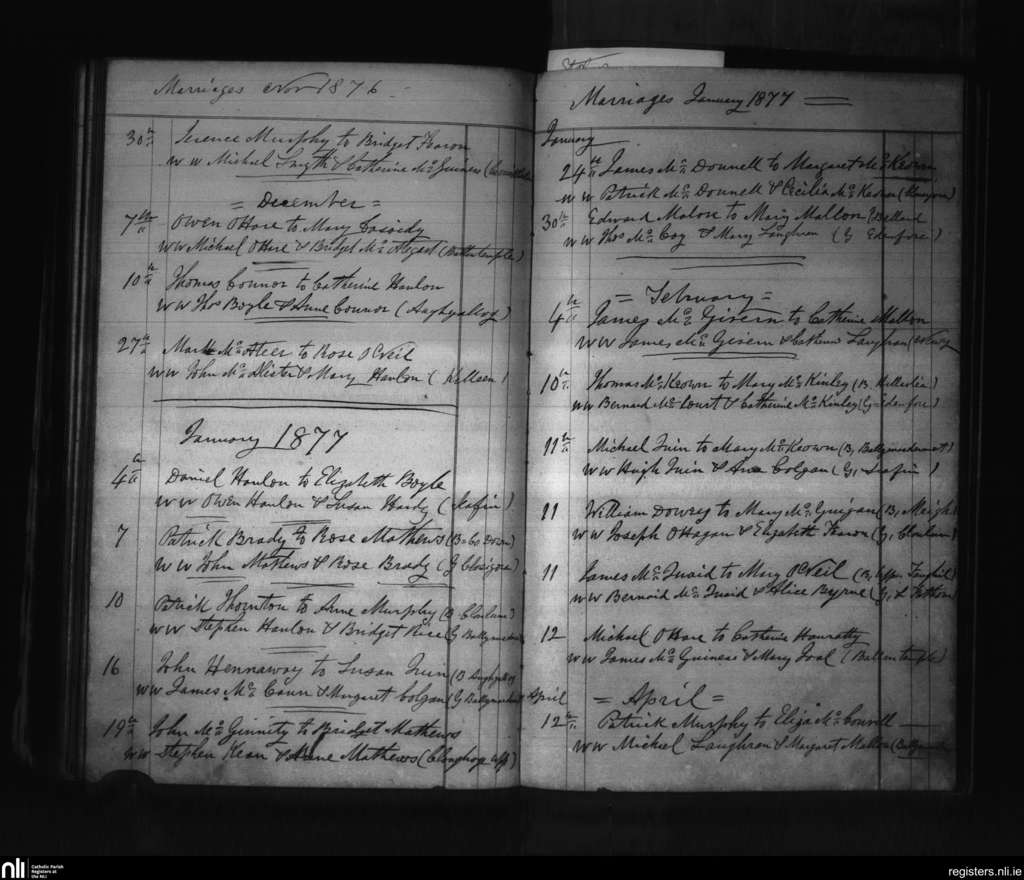 Marriages Nov 1876
30th Terence Murphy to Bridget Fearon
w w Michael Smyth & Catherine Mc Guiness
= December =
7th Owen O'Hare to Mary Cassidy
w w Michael O'Hare & Bridget Mc Ateer
10th Thomas Connor to Catherine Hanlon
w w Thos Boyle & Anne Connor (Aughyalloy)
27th Mark Mc Ateer to Rose O'Neil
w w John Mc & Mary Hanlon (Killeen)
January 1877
4th Daniel Hanlon to Elizabeth Boyle
w w Owen Hanlon & Susan Hardy
7 Patrick Brady to Rose Mathews (B = Co Down)
w w John Mathews & Rose Brady (G Closigore)
10 Patrick Thornton to Anne Murphy (B Cloulum)
w w Stephen Hanlon & Bridget Rice (G
16 John Hennaway to Susan Quin (B
w w James Mc Cann & Margaret Colgan (G
19th John Mc Ginnity to Bridget Mathews
w w Stephen Kean & Anne Mathews
Marriages January 1877
January
24th James Mc Donnell to Margaret Mc Keown
w w Patrick Mc Donnell & Cecilia Mc Keown
30th Edward Malon to Mary Mallon
w w Thos Mc Coy & Mary Loughran (G Edenfore)
= February =
4th James Mc Givern to Catherine Mallon
w w James Mc Givern & Catherine Loughran
10th Thomas Mc Keown to Mary Mc Kinley (B
w w Bernard Mc Court & Catherine Mc Kinley (G = Edenfore)
11th Michael Quin to Mary Mc Keown (B,
w w Hugh Quin & Ann Colgan (G,
11 William Dowey to Mary Mc Guigan (B, Meigh)
w w Joseph O'Hagan & Elizabeth Fearon (G, Cloulum)
11 James Mc Quaid to Mary O'Neil (B, Upper
w w Bernard Mc Quaid & Alice Byrne (G,
12 Michael O'Hare to Catherine Hanratty
w w James Mc Guiness & Mary
April = April =
12th Patrick Murphy to Eliza Mc Connell
w w Michael Loughran & Margaret Mallon
nli Catholic Parish
Registers at
the NLI
registers.nli.ie